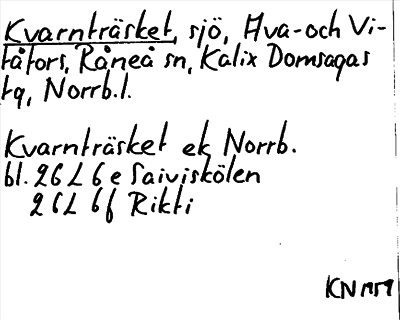 Kvarnträsket, sjö, Hva- och Vi-
tåfors, Råneå sn, Kalix Domsagas
tg, Norrb.l.
Kvarnträsket ek Norrb.
bl. 26L 6e Saiviskölen
26L 6f Rikti
KN 1959